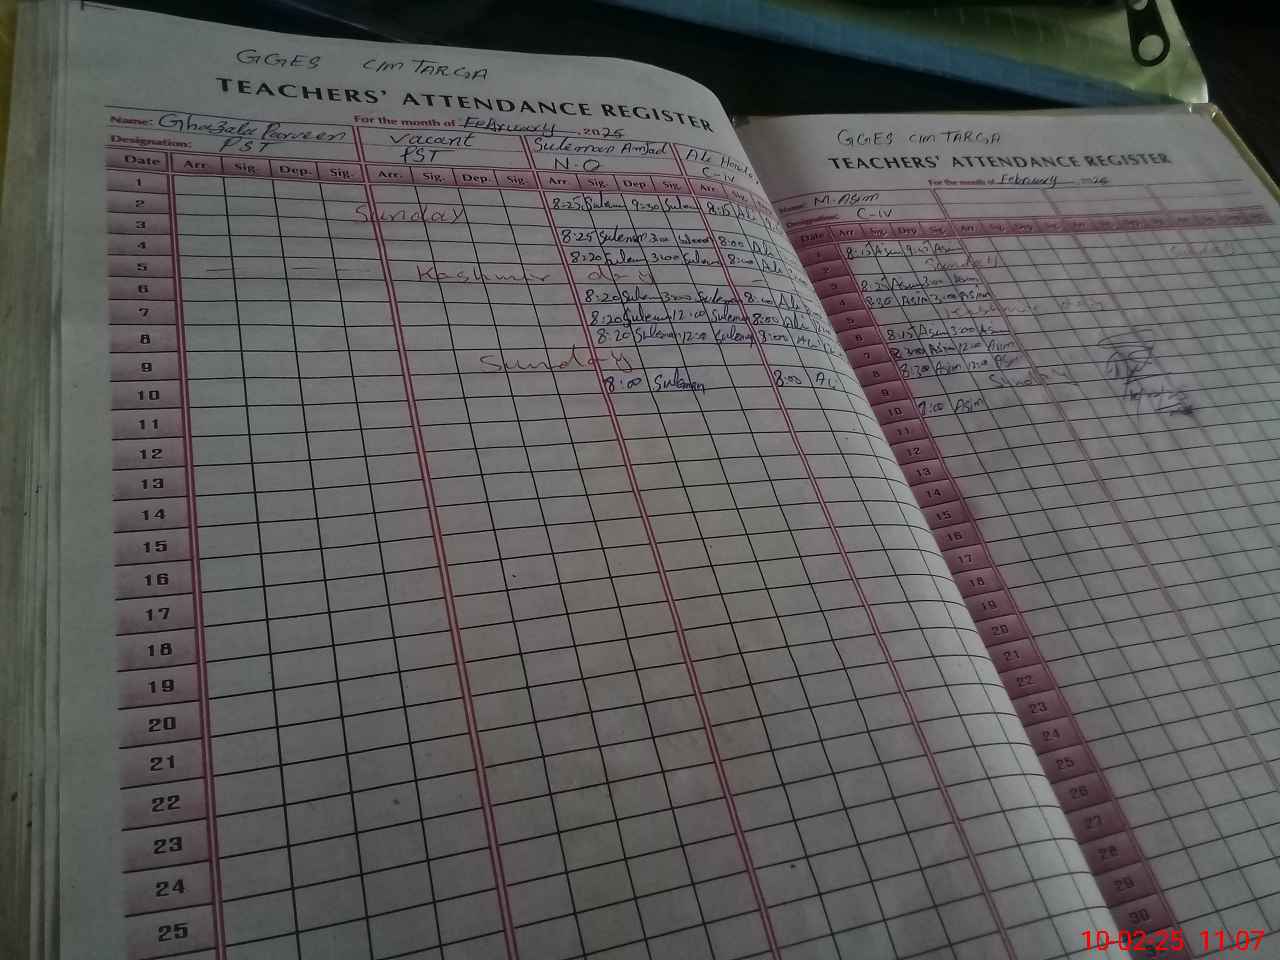 GGES CM TARGA
TEACHERS' ATTENDANCE REGISTER
For the month of February, 2025
Name: Ghazala Parveen Vacant Suleman Amjad Ali
Designation: PST PST N-Q C-IV
Date Arr. Sig. Dep. Sig. Arr. Sig. Dep. Sig. Arr. Sig. Dep Sig. Arr. Sig.
1 8:25 Sulem 9:30 Sulem 8:15 Ali
2 Sunday
3 8:25 Suleman 3:00 8:00 Ali
4 8:20 Suleman 3:00 Suleman 8:00 Ali
5 Kashmir day
6 8:20 Sulem 3:00 Suleman 8:00 Ali
7 8:20 Sulem 12:00 Suleman 8:00 Ali
8 8:20 Suleman 12:00 Suleman 8:00 Ali
9 Sunday
10 8:00 Suleman 8:00 Al
11
12
13
14
15
16
17
18
19
20
21
22
23
24
25
GGES CM TARGA
TEACHERS' ATTENDANCE REGISTER
For the month of February, 2025
Name: M. Asim
Designation: C-IV
Date Arr Sig. Dep Sig.
1 8:15 Asim Asim
2 Sunday
3 8:25 Asim 3:00 Asim
4 8:20 Asim 3:00 Asim
5
6 8:15 Asim 3:00 Asim
7 Asim 12:00 Asim
8 8:20 Asim 12:00 Asim
9 Sunday
10 8:00 Asim
11
12
13
14
15
16
17
18
19
20
21
22
23
24
25
26
27
28
29
30
10-02-25 11:07